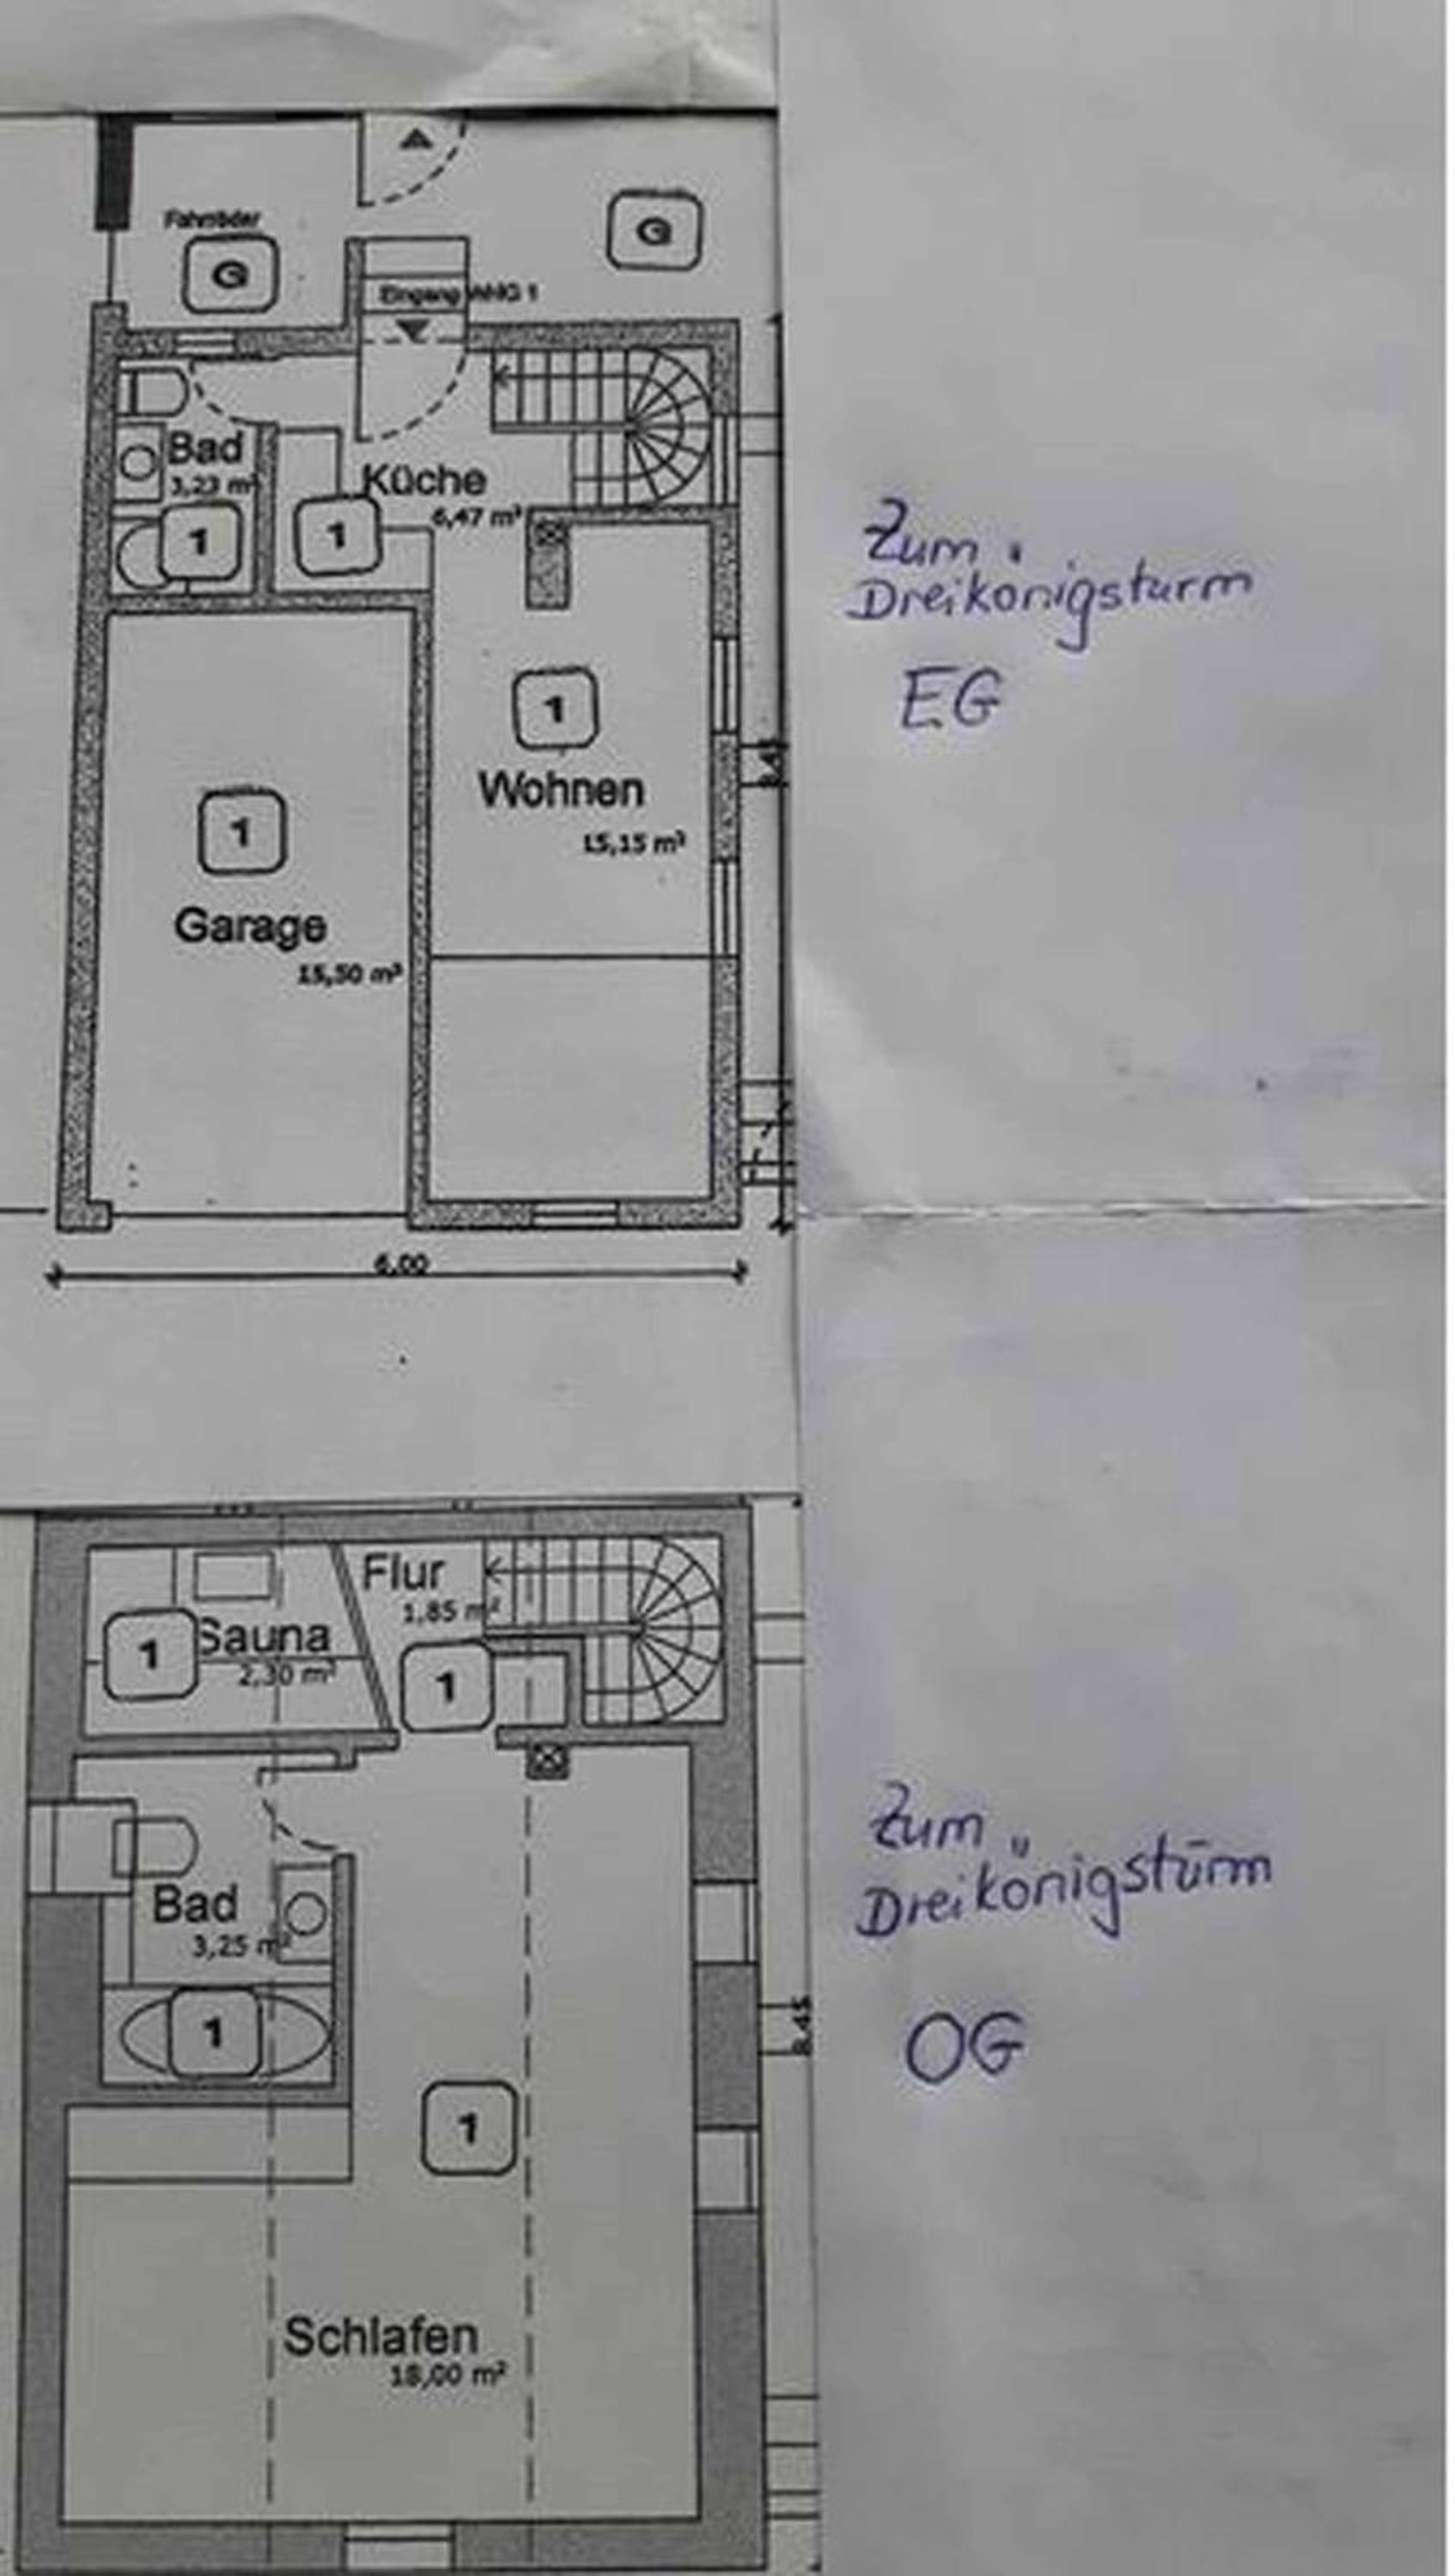 Fahrräder
G
G
Eingang WHG 1
Bad
3,23 m²
1
Küche
6,47 m²
1
Zum
Dreikönigsturm
EG
1
Wohnen
15,15 m²
1
Garage
15,50 m²
6.00
Flur
1,85 m²
Sauna
2,30 m²
1
1
Zum
Dreikönigsturm
OG
Bad
3,25 m²
1
9.45
1
Schlafen
18,00 m²